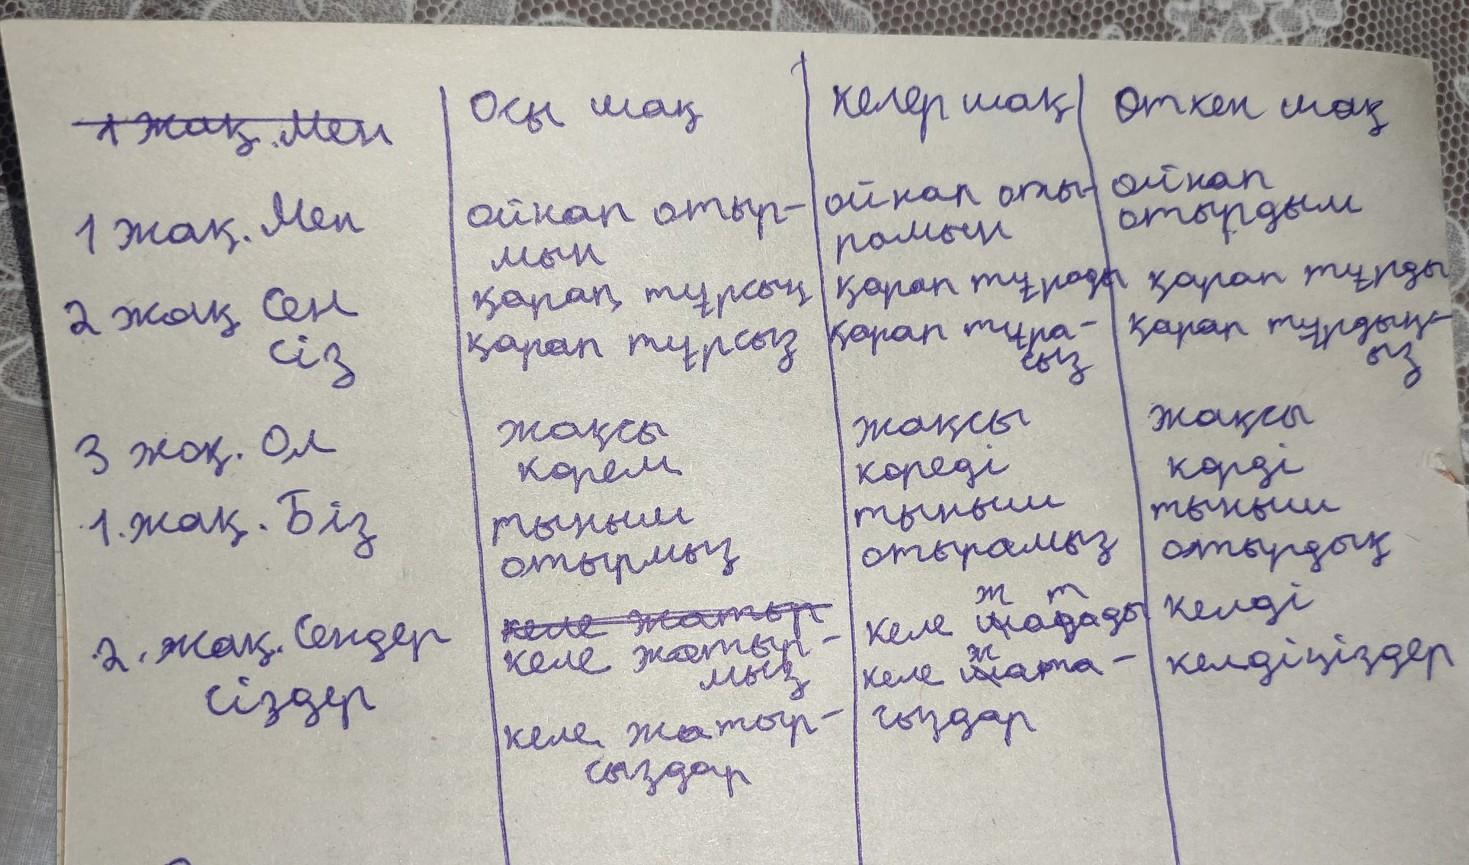 1 жақ. Мен
Осы шақ
келер шақ
Өткен шақ
1 жақ. Мен
ойнап отыр-
мын
ойнап оты-
рамын
ойнап
отырдым
2 жақ Сен
қарап тұрсың
қарап тұрады
қарап тұрды
сіз
қарап тұрсыз
қарап тұра-
сыз
қарап тұрдың-
ыз
3 жақ. Ол
жақсы
көрем
жақсы
көреді
жақсы
көрді
1. жақ. Біз
тыныш
отырмыз
тыныш
отырамыз
тыныш
отырдық
2. жақ. Сендер
келе жатыр
келе жатыр-
мыз
келе жатады
келді
сіздер
келе жатыр-
сыздар
келе жата-
сыздар
келдіңіздер